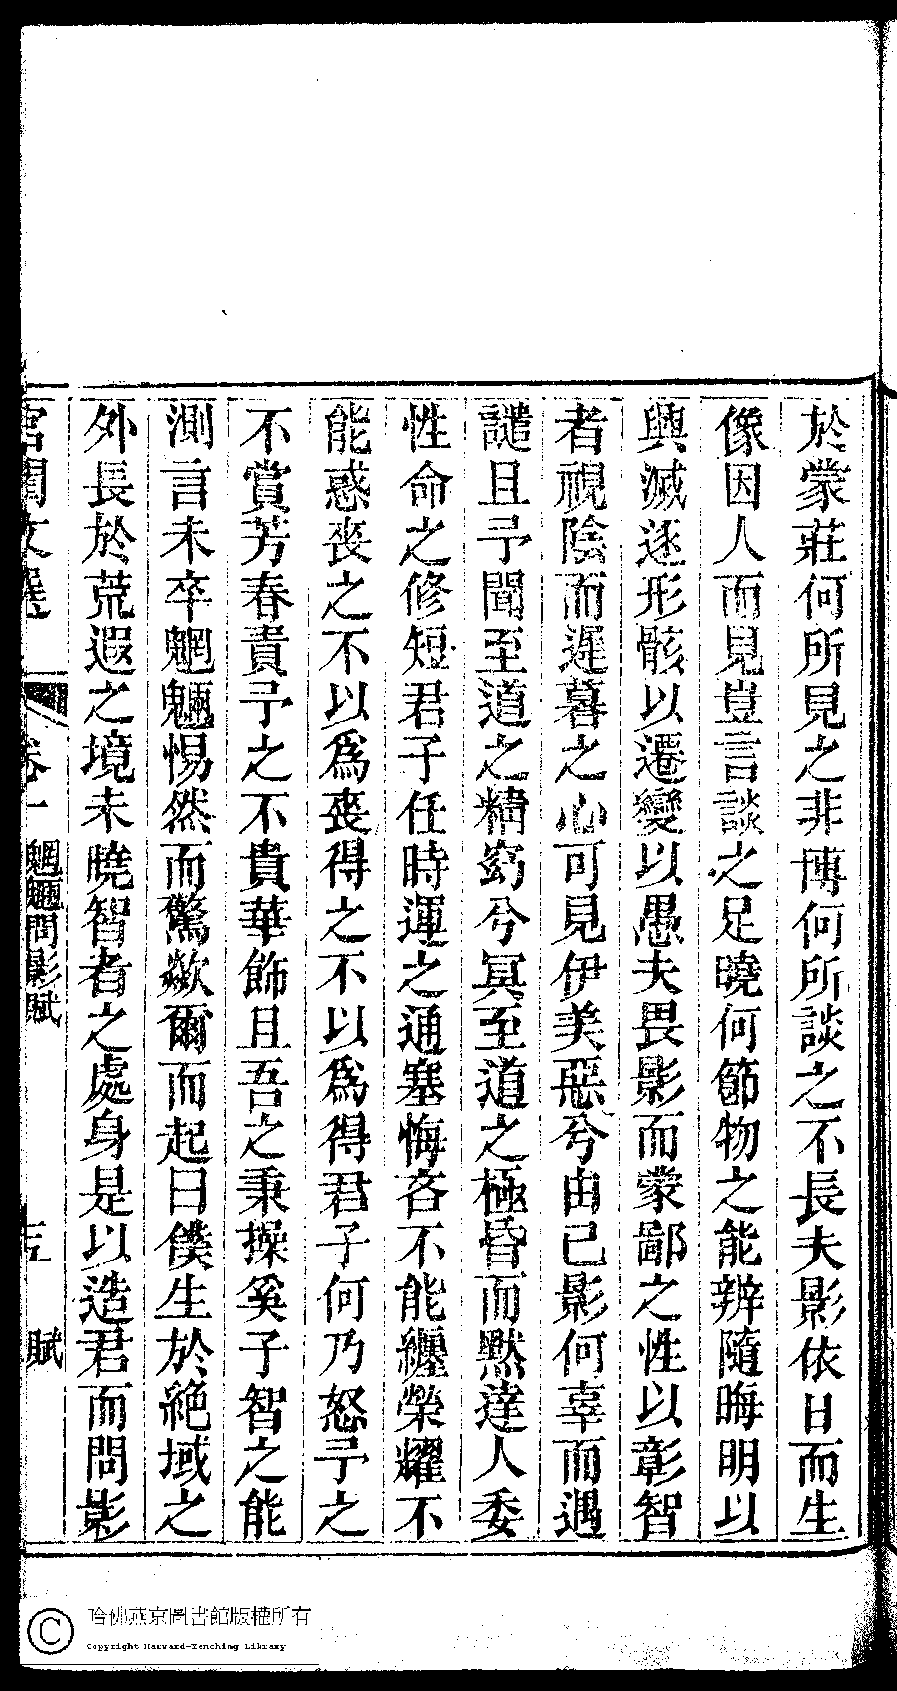 於蒙莊何所見之非博何所談之不長夫影依日而生
像因人而見豈言談之足曉何節物之能辨隨晦明以
興滅逐形骸以遷變以愚夫畏影而蒙鄙之性以彰智
者視陰而遲暮之心可見伊美惡兮由已影何辜而遇
譴且予聞至道之精窈兮冥至道之極昏而默達人委
性命之修短君子任時運之通塞悔吝不能纏榮耀不
能惑喪之不以爲喪得之不以爲得君子何乃怒予之
不賞芳春責予之不貴華飾且吾之秉操奚子智之能
測言未卒魍魎惕然而驚歘爾而起曰僕生於絕域之
外長於荒遐之境未曉智者之處身是以造君而問影
宮閨文選 卷一 魍魎問影賦 五 賦
哈佛燕京圖書館版權所有
Copyright Harvard-Yenching Library